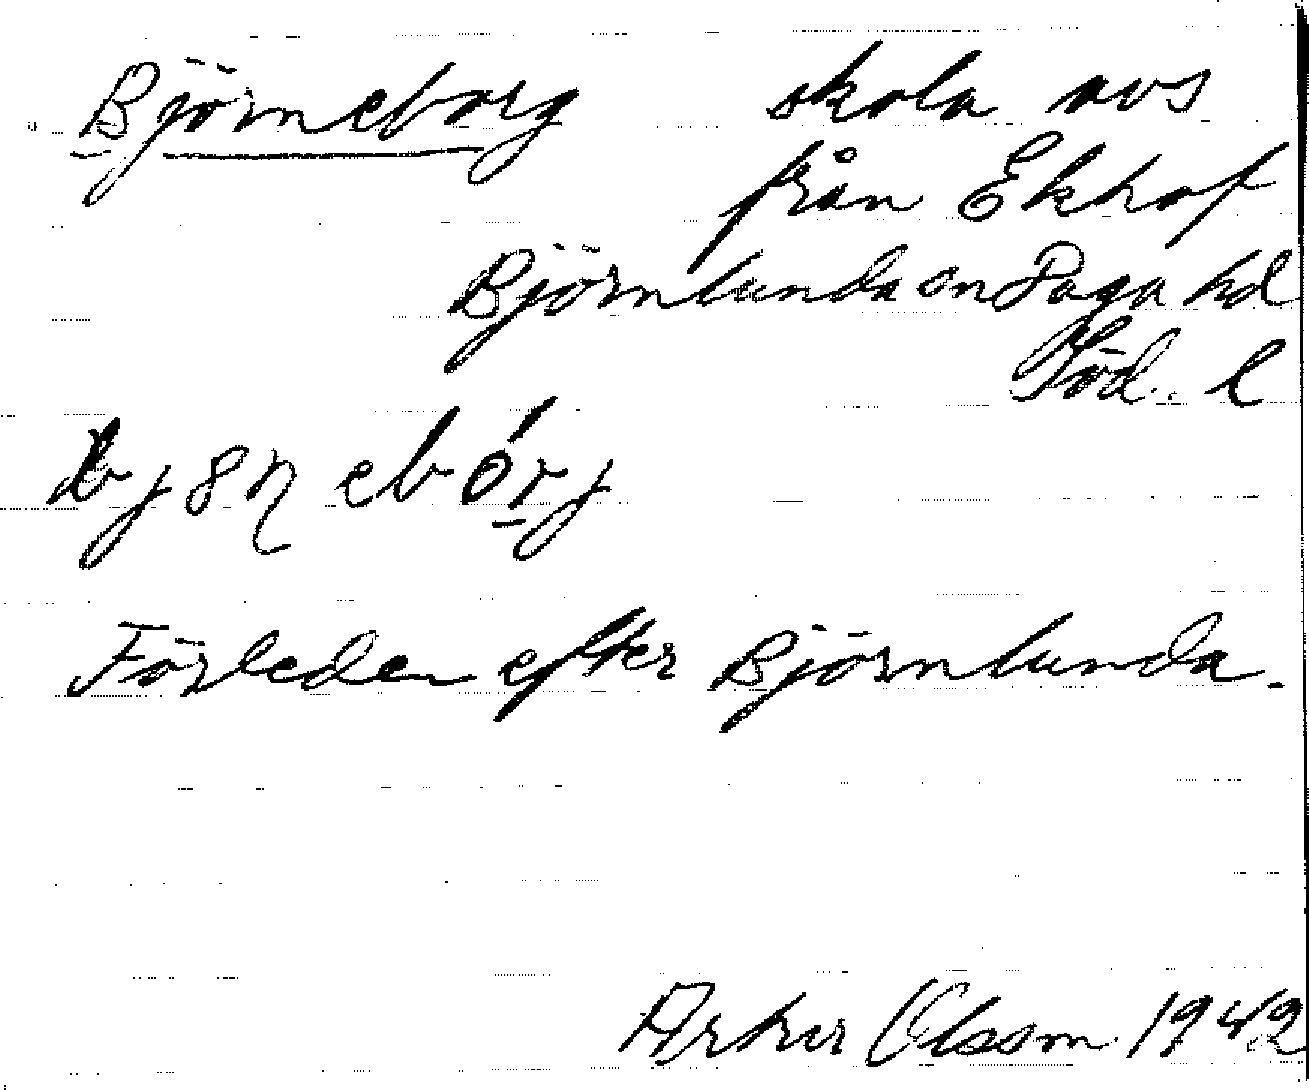 Björneborg skola avs
från Ekhof
Björnlunda sn Daga hd
Söd. l
Förleden efter Björnlunda.
Arthur Olsson 1942